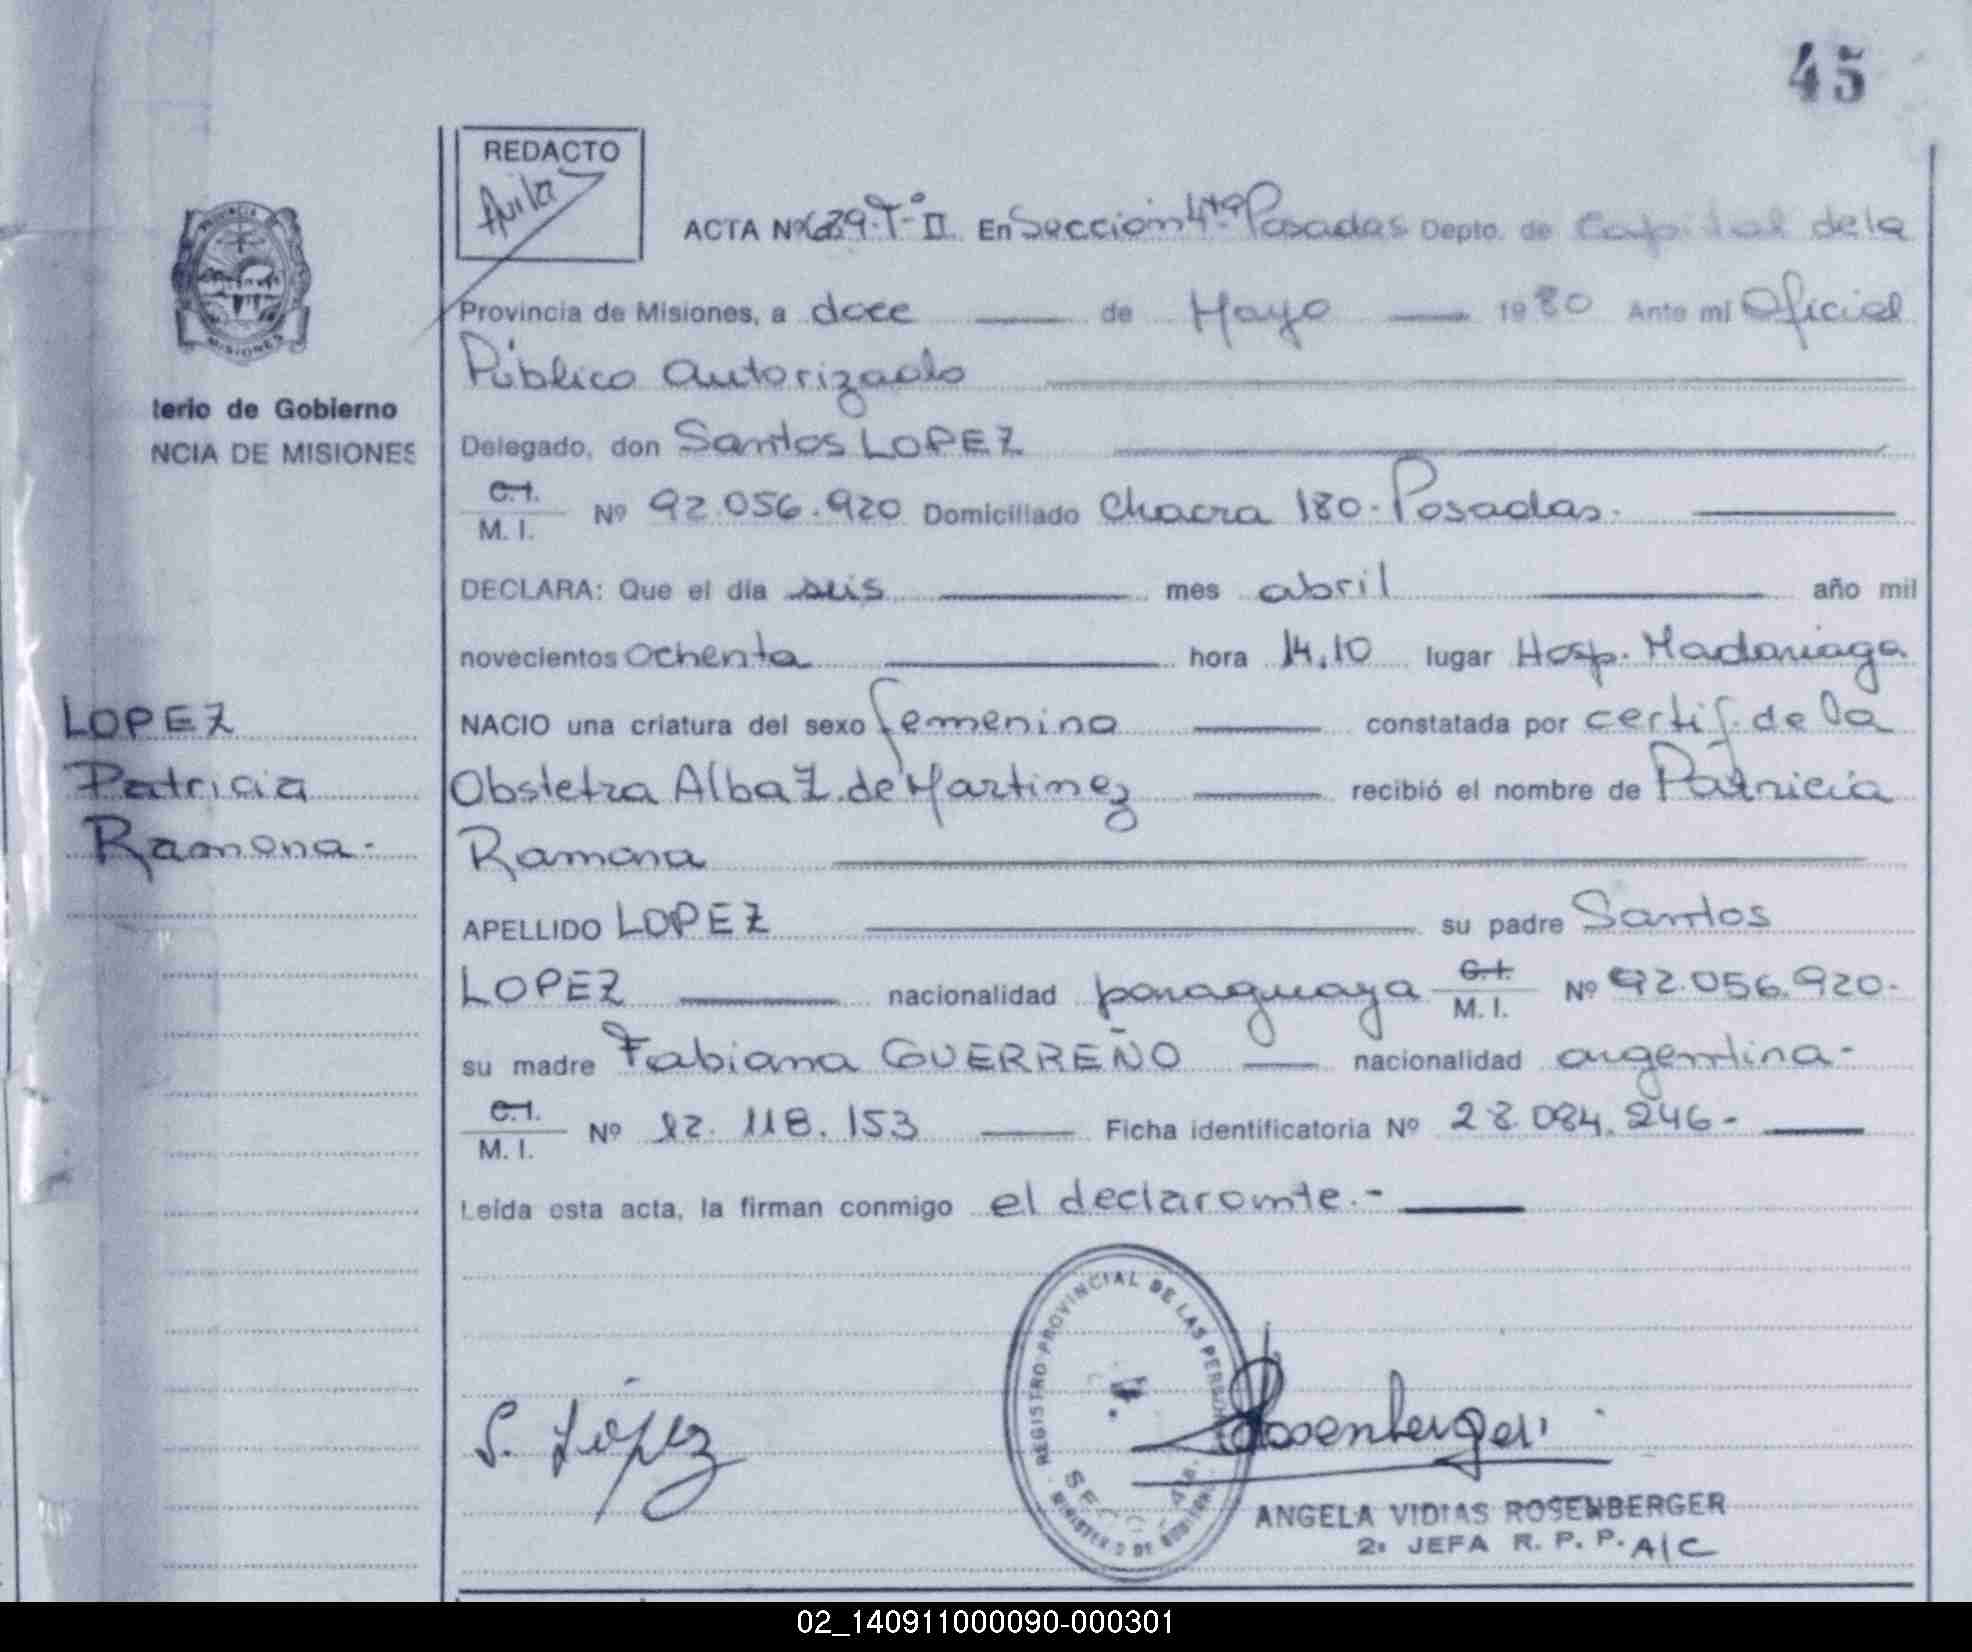 45
REDACTO
Avila
ACTA Nº 639.Tº II En Sección 4ta Posadas Depto. de Capital de la
Provincia de Misiones, a doce de Mayo 1980 Ante mi Oficial
Público autorizado
terio de Gobierno
NCIA DE MISIONES
Delegado, don Santos LOPEZ
C.I. M. I. Nº 92.056.920 Domiciliado Chacra 180 - Posadas.
DECLARA: Que el día seis mes abril año mil
novecientos ochenta hora 14.10 lugar Hosp. Madariaga
LOPEZ
Patricia
Ramona.-
NACIO una criatura del sexo femenino constatada por certif. de la
Obstetra Alba Z. de Martinez recibió el nombre de Patricia
Ramona
APELLIDO LOPEZ su padre Santos
LOPEZ nacionalidad paraguaya C.I. M. I. Nº 92.056.920-
su madre Fabiana GUERREÑO nacionalidad argentina-
C.I. M. I. Nº 12.118.153 Ficha identificatoria Nº 28.084.246-
Leída esta acta, la firman conmigo el declarante.-
REGISTRO PROVINCIAL DE LAS
S. López
Rosenberger
ANGELA VIDIAS ROSENBERGER
2ª JEFA R. P. P. A/C
02_140911000090-000301